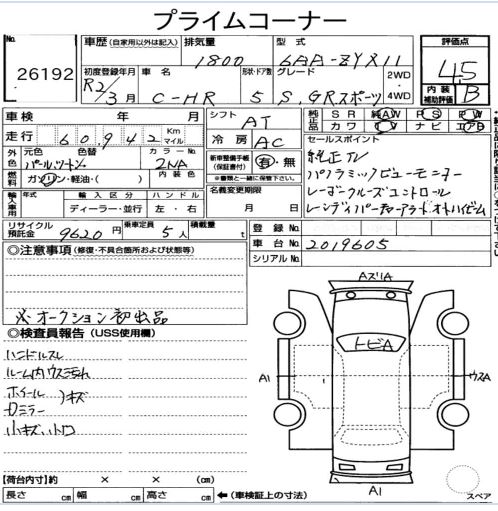 プライムコーナー
No. 26192
車歴 (自家用以外は記入) 排気量 1800 型式 6AA-ZYX11
初度登録年月 R2/3月 車名 C-HR 形状・ドア数 5 グレード S,GRスポーツ 2WD・4WD
評価点 4.5
内装補助評価 B
車検 年 月 シフト AT
走行 60,942 Km マイル 冷房 AC
純正品 SR 純AW PS PW
革 カワ TV ナビ エアB
外色 元色 パールツートン 色替 カラーNo. 2NA
燃料 ガソリン・軽油・( ) 内装色
新車整備手帳(保証書付) 有・無
※書類と一緒に保管して下さい。
輸入車用 年式 輸入区分 ディーラー・並行 ハンドル 左・右
名義変更期限 月 日
リサイクル預託金 9620円 乗車定員 5人 積載量 t
セールスポイント
純正TV
パノラミックビューモニター
レーダークルーズコントロール
登録No.
車台No. 2019605
シリアルNo.
◎注意事項 (修復・不具合箇所および状態等)
※オークション初出品
◎検査員報告 (USS使用欄)
ハンドルスレ
ルーム内ウスヨゴレ
ホイール
Dミラー
キズ
小キズ、小凹
アズリA
トビA
A1
ウスA
A1
スペア
【荷台内寸】約 × × (cm)
長さ cm 幅 cm 高さ cm ←(車検証上の寸法)